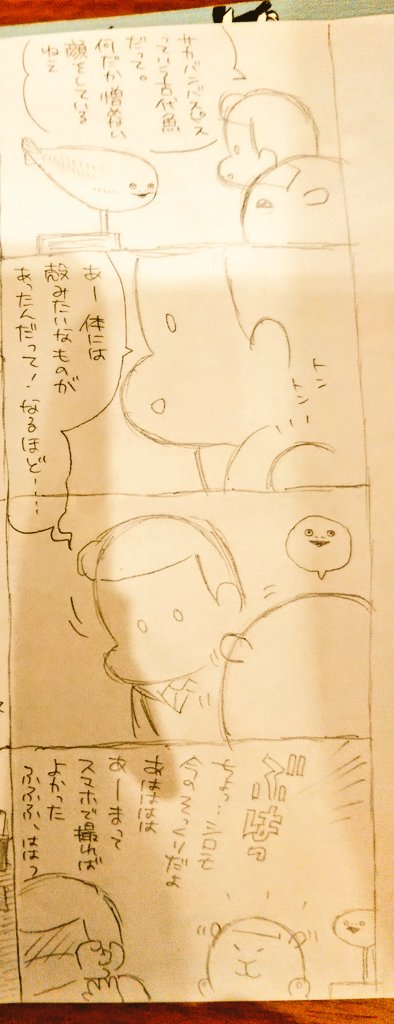 サカバンバスピス
っていう古代魚
だって。
何だか憎めない
顔をしている
ねえ
トン
トン…
あー 体には
殻みたいなものが
あったんだって！なるほどー…
ぶはっ
ちょっ…シロも
今のそっくりだよ
あはははは
あーまって
スマホで撮れば
よかった
ふふふ、はは